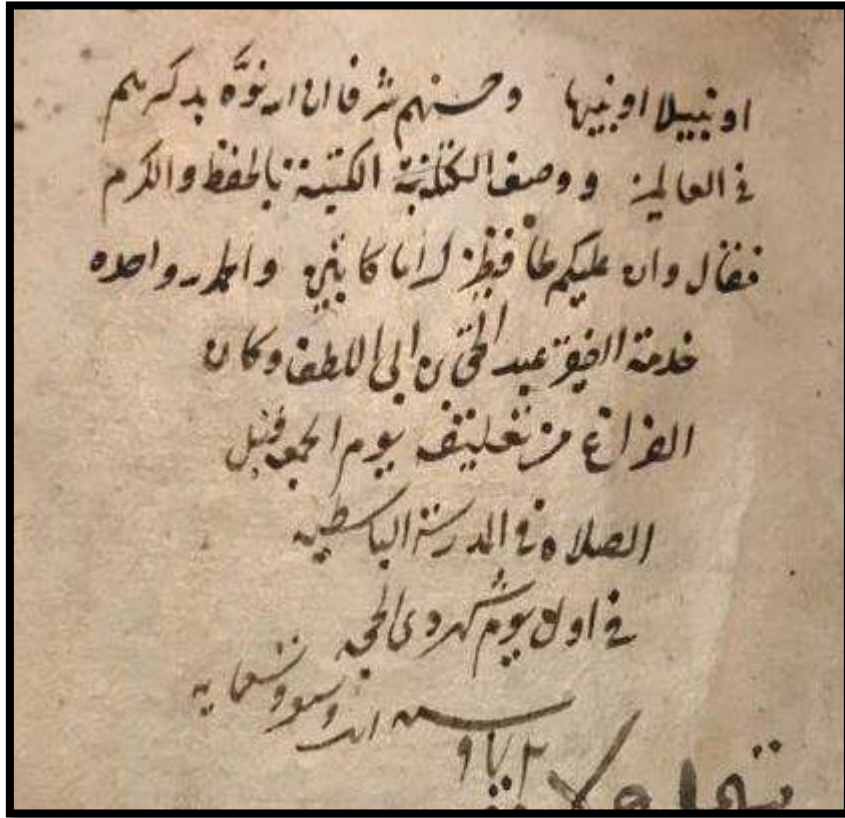 او نبيلا او نبيها وحسبهم شرفا ان الله نوّه بذكرهم
في العالمين ووصف الكتبة بالحفظ والكرم
فقال وان عليكم لحافظين كراما كاتبين والحمد لله وحده
خدمة الفقير عبد الحق بن ابي اللطف وكان
الفراغ من تعليقه يوم الجمعه قبل
الصلاه في المدرسة الباسطيه
في اول يوم شهر ذي الحجه
سنه وتسعمايه